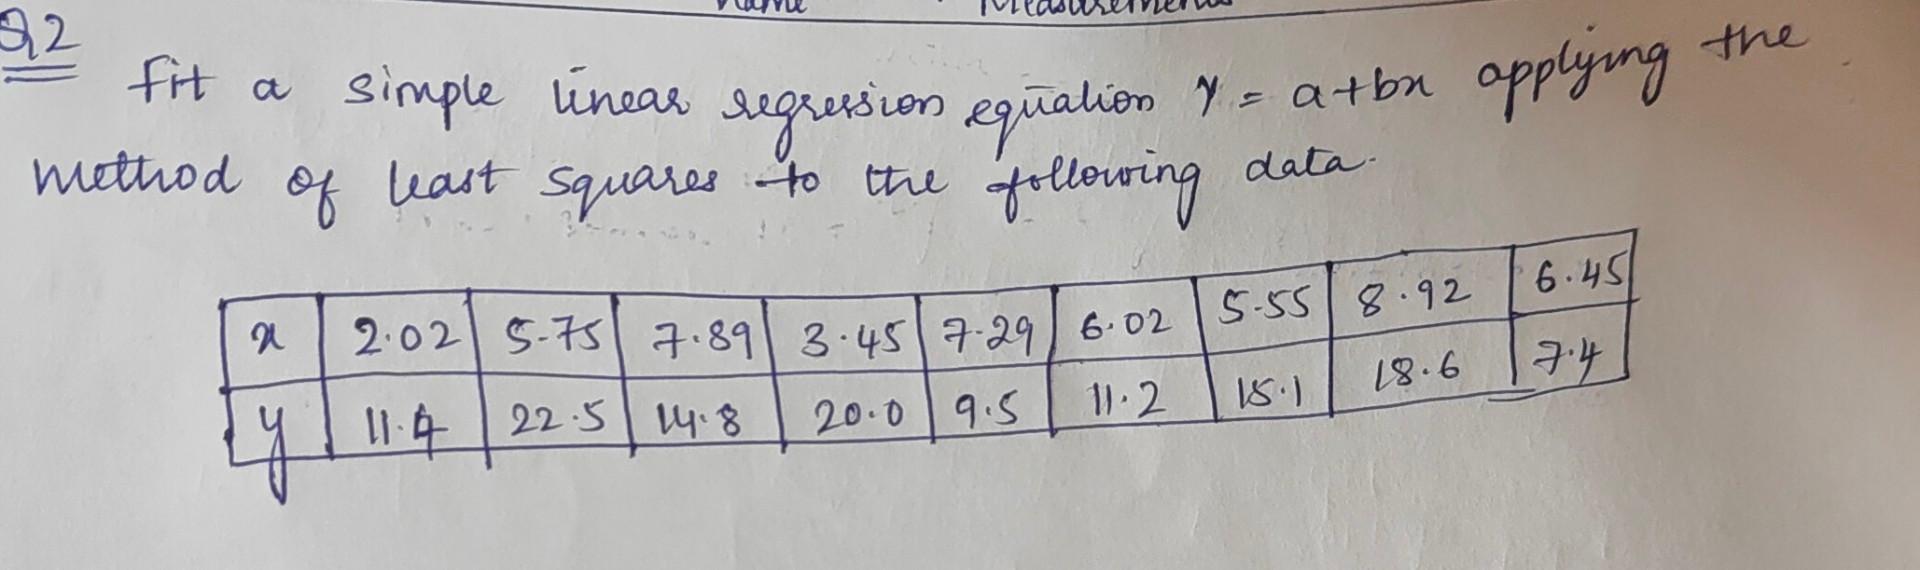 Name Measurements
Q2
Fit a simple linear regression equation Y = a+bx applying the
method of least squares to the following data.
x 2.02 5.75 7.89 3.45 7.29 6.02 5.55 8.92 6.45
y 11.4 22.5 14.8 20.0 9.5 11.2 15.1 18.6 7.4